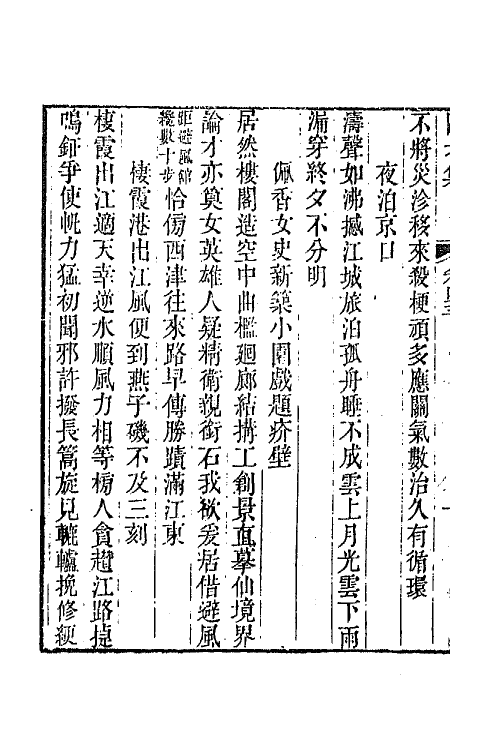 不將災沴移來殺梗頑多應關氣數治久有循環
夜泊京口
濤聲如沸撼江城旅泊孤舟睡不成雲上月光雲下雨
漏穿終夕不分明
佩香女史新築小園戲題疥壁
居然樓閣造空中曲檻廻廊結搆工創景直摹仙境界
論才亦算女英雄人疑精衛親銜石我欲爰居借避風
距避風館纔數十步恰傍西津往來路早傳勝蹟滿江東
棲霞港出江風便到燕子磯不及三刻
棲霞出江適天幸逆水順風力相等榜人貪趲江路捷
鳴鉦爭使帆力猛初聞邪許撥長篙旋見轆轤挽修綆